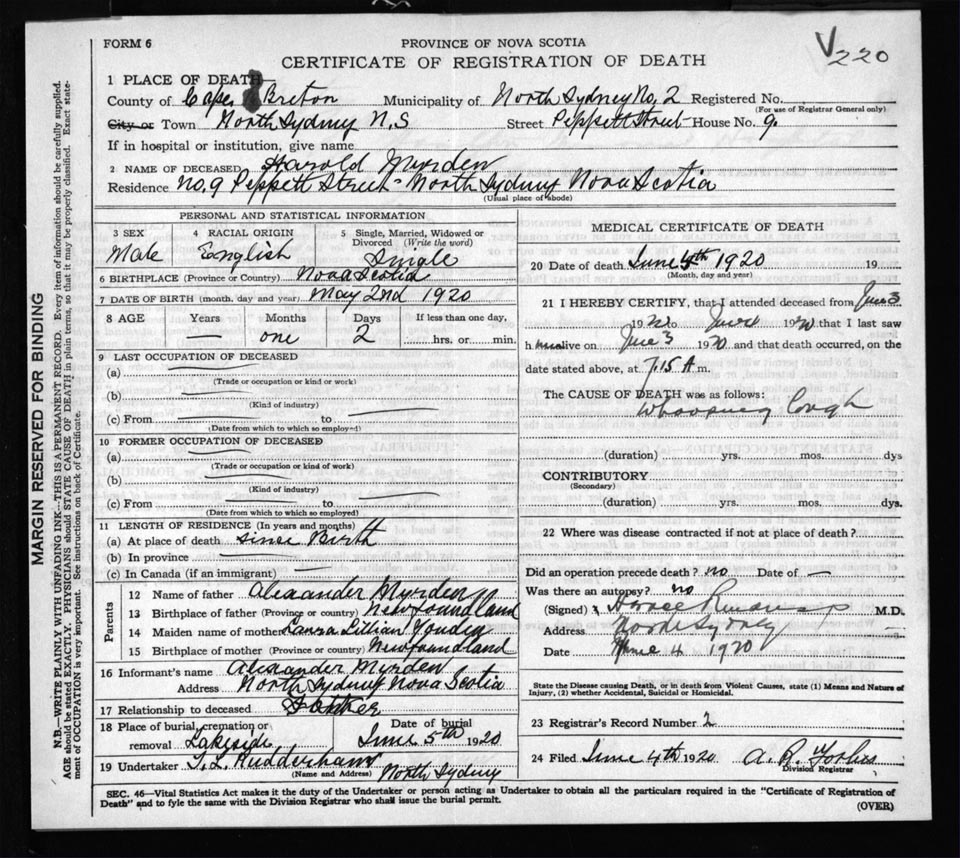 V220
FORM 6
PROVINCE OF NOVA SCOTIA
CERTIFICATE OF REGISTRATION OF DEATH
1 PLACE OF DEATH
County of Cape Breton Municipality of North Sydney No. 2 Registered No.
(For use of Registrar General only)
City or Town North Sydney N.S Street Peppett Street House No. 9.
If in hospital or institution, give name
2 NAME OF DECEASED Harold Myrden
Residence No. 9 Peppett Street - North Sydney Nova Scotia
(Usual place of abode)
PERSONAL AND STATISTICAL INFORMATION
3 SEX Male
4 RACIAL ORIGIN English
5 Single, Married, Widowed or Divorced (Write the word) Single
6 BIRTHPLACE (Province or Country) Nova Scotia
7 DATE OF BIRTH (month, day and year) May 2nd 1920
8 AGE Years — Months one Days 2 If less than one day, ......hrs. or......min.
9 LAST OCCUPATION OF DECEASED
(a)
(Trade or occupation or kind or work)
(b)
(Kind of industry)
(c) From to
(Date from which to which so employed)
10 FORMER OCCUPATION OF DECEASED
(a)
(Trade or occupation or kind of work)
(b)
(Kind of industry)
(c) From to
(Date from which to which so employed)
11 LENGTH OF RESIDENCE (In years and months)
(a) At place of death since Birth
(b) In province
(c) In Canada (if an immigrant) —
Parents
12 Name of father Alexander Myrden
13 Birthplace of father (Province or country) Newfoundland
14 Maiden name of mother Laura Lillian Youden
15 Birthplace of mother (Province or country) Newfoundland
16 Informant's name Alexander Myrden
Address North Sydney Nova Scotia
17 Relationship to deceased Father
18 Place of burial, cremation or removal Lakeside
Date of burial June 5th 1920
19 Undertaker T. L. Rudderham North Sydney
(Name and Address)
MEDICAL CERTIFICATE OF DEATH
20 Date of death June 4th 1920 19
(Month, day and year)
21 I HEREBY CERTIFY, that I attended deceased from June 3
1920 to June 4 1920 that I last saw
h im alive on June 3 1920 and that death occurred, on the
date stated above, at 7.15 A m.
The CAUSE OF DEATH was as follows:
Whooping Cough
(duration) yrs. mos. dys
CONTRIBUTORY
(Secondary)
(duration) yrs. mos. dys.
22 Where was disease contracted if not at place of death?
Did an operation precede death? no Date of —
Was there an autopsy? no
(Signed) M.D.
Address North Sydney
Date June 4 1920
State the Disease causing Death, or in death from Violent Causes, state (1) Means and Nature of
Injury, (2) whether Accidental, Suicidal or Homicidal.
23 Registrar's Record Number 2
24 Filed June 4th 1920 A. R. Forbes
Division Registrar
SEC. 46—Vital Statistics Act makes it the duty of the Undertaker or person acting as Undertaker to obtain all the particulars required in the "Certificate of Registration of
Death" and to fyle the same with the Division Registrar who shall issue the burial permit.
(OVER)
MARGIN RESERVED FOR BINDING
N.B.—WRITE PLAINLY WITH UNFADING INK—THIS IS A PERMANENT RECORD. Every item of information should be carefully supplied.
AGE should be stated EXACTLY. PHYSICIANS should STATE CAUSE OF DEATH in plain terms, so that it may be properly classified. Exact state-
ment of OCCUPATION is very important. See instructions on back of Certificate.